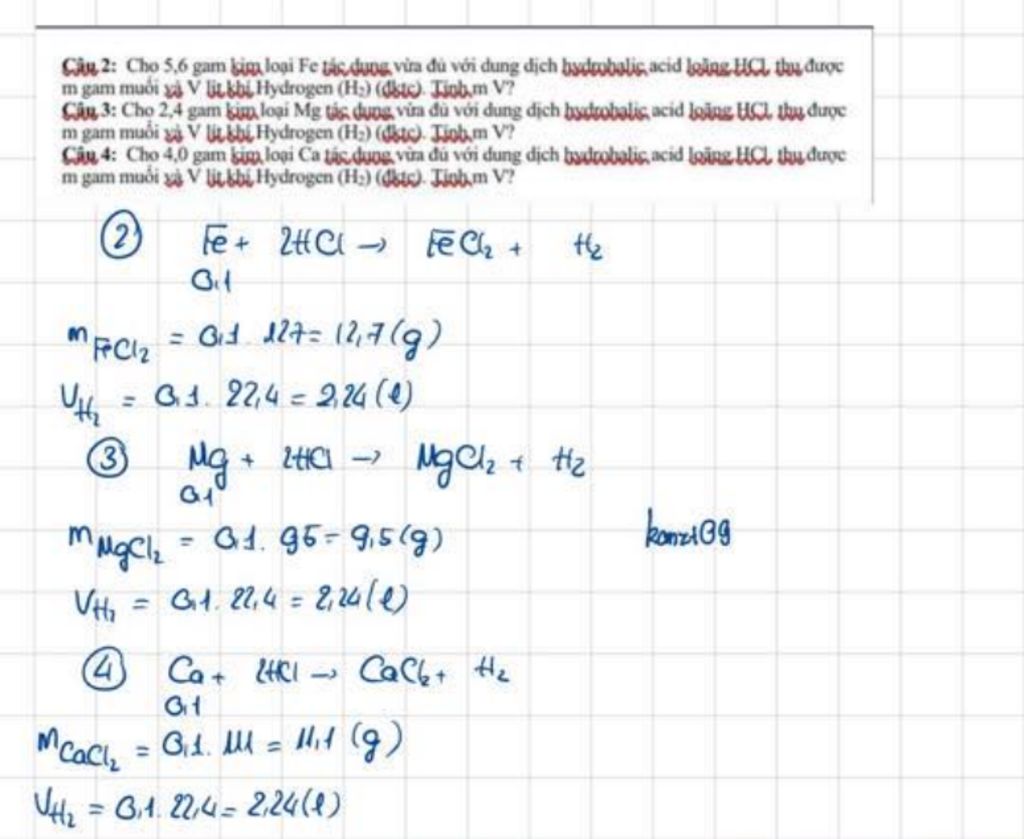 Câu 2: Cho 5,6 gam kim loại Fe tác dụng vừa đủ với dung dịch hydrohalic acid loãng HCl, thu được
m gam muối và V lít khí Hydrogen (H₂) (đktc). Tính m V?
Câu 3: Cho 2,4 gam kim loại Mg tác dụng vừa đủ với dung dịch hydrohalic acid loãng HCl, thu được
m gam muối và V lít khí Hydrogen (H₂) (đktc). Tính m V?
Câu 4: Cho 4,0 gam kim loại Ca tác dụng vừa đủ với dung dịch hydrohalic acid loãng HCl, thu được
m gam muối và V lít khí Hydrogen (H₂) (đktc). Tính m V?
② Fe + 2HCl → FeCl₂ + H₂
0,1
m FeCl₂ = 0,1 . 127 = 12,7 (g)
V H₂ = 0,1 . 22,4 = 2,24 (l)
③ Mg + 2HCl → MgCl₂ + H₂
0,1
m MgCl₂ = 0,1 . 95 = 9,5 (g)
V H₂ = 0,1 . 22,4 = 2,24 (l)
④ Ca + 2HCl → CaCl₂ + H₂
0,1
m CaCl₂ = 0,1 . 111 = 11,1 (g)
V H₂ = 0,1 . 22,4 = 2,24 (l)